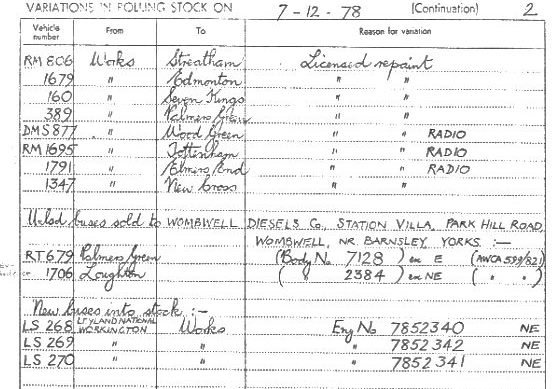 VARIATIONS IN ROLLING STOCK ON 7-12-78 (Continuation) 2
Vehicle number From To Reason for variation
RM 806 Works Streatham Licensed repaint
1679 " Edmonton " "
160 " Seven Kings " "
389 " Palmers Green " "
DMS 877 " Wood Green " " RADIO
RM 1695 " Tottenham " " RADIO
1791 " Elmers End " " RADIO
1347 " New Cross " "
Unlsd buses sold to WOMBWELL DIESELS Co., STATION VILLA, PARK HILL ROAD,
WOMBWELL, NR. BARNSLEY, YORKS :—
RT 679 Palmers Green (Body No 7128) ex E (AWCA 599/821)
1706 Loughton ( " 2384 ) ex NE ( " " )
New buses into stock :-
LS 268 LEYLAND NATIONAL WORKINGTON Works Eng No 7852340 NE
LS 269 " " " 7852342 NE
LS 270 " " " 7852341 NE